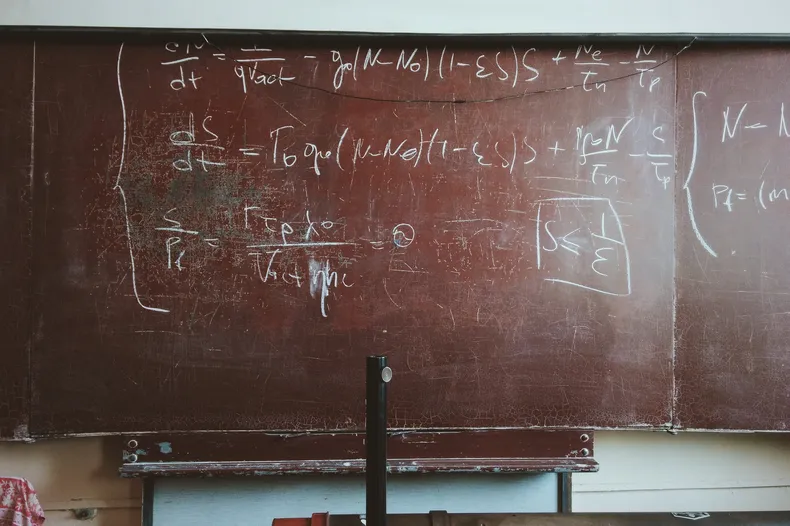 dN/dt = 1/qVact - g₀(N-N₀)(1-εS)S + Ne/τn - N/τp
dS/dt = Γ₀g₀(N-N₀)(1-εS)S + N/τn - S/τp
S/Pf = Γτpλ₀/Vactηhc = ②
S ≤ 1/ε
N = N
Pf = (m